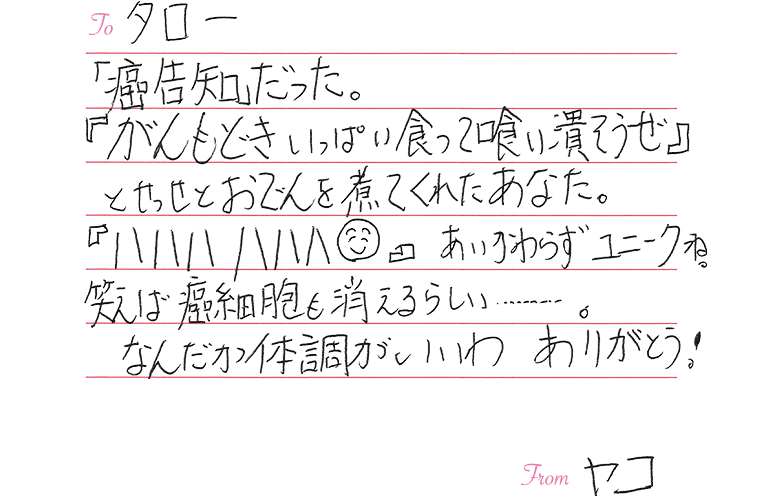 To タロー
「癌告知」だった。
『がんもどきいっぱい食って喰い潰そうぜ』
とせっせとおでんを煮てくれたあなた。
『ハハハハハハ😊』 あいかわらずユニークね。
笑えば癌細胞も消えるらしい………。
なんだか体調がいいわ ありがとう!
From ヤコ